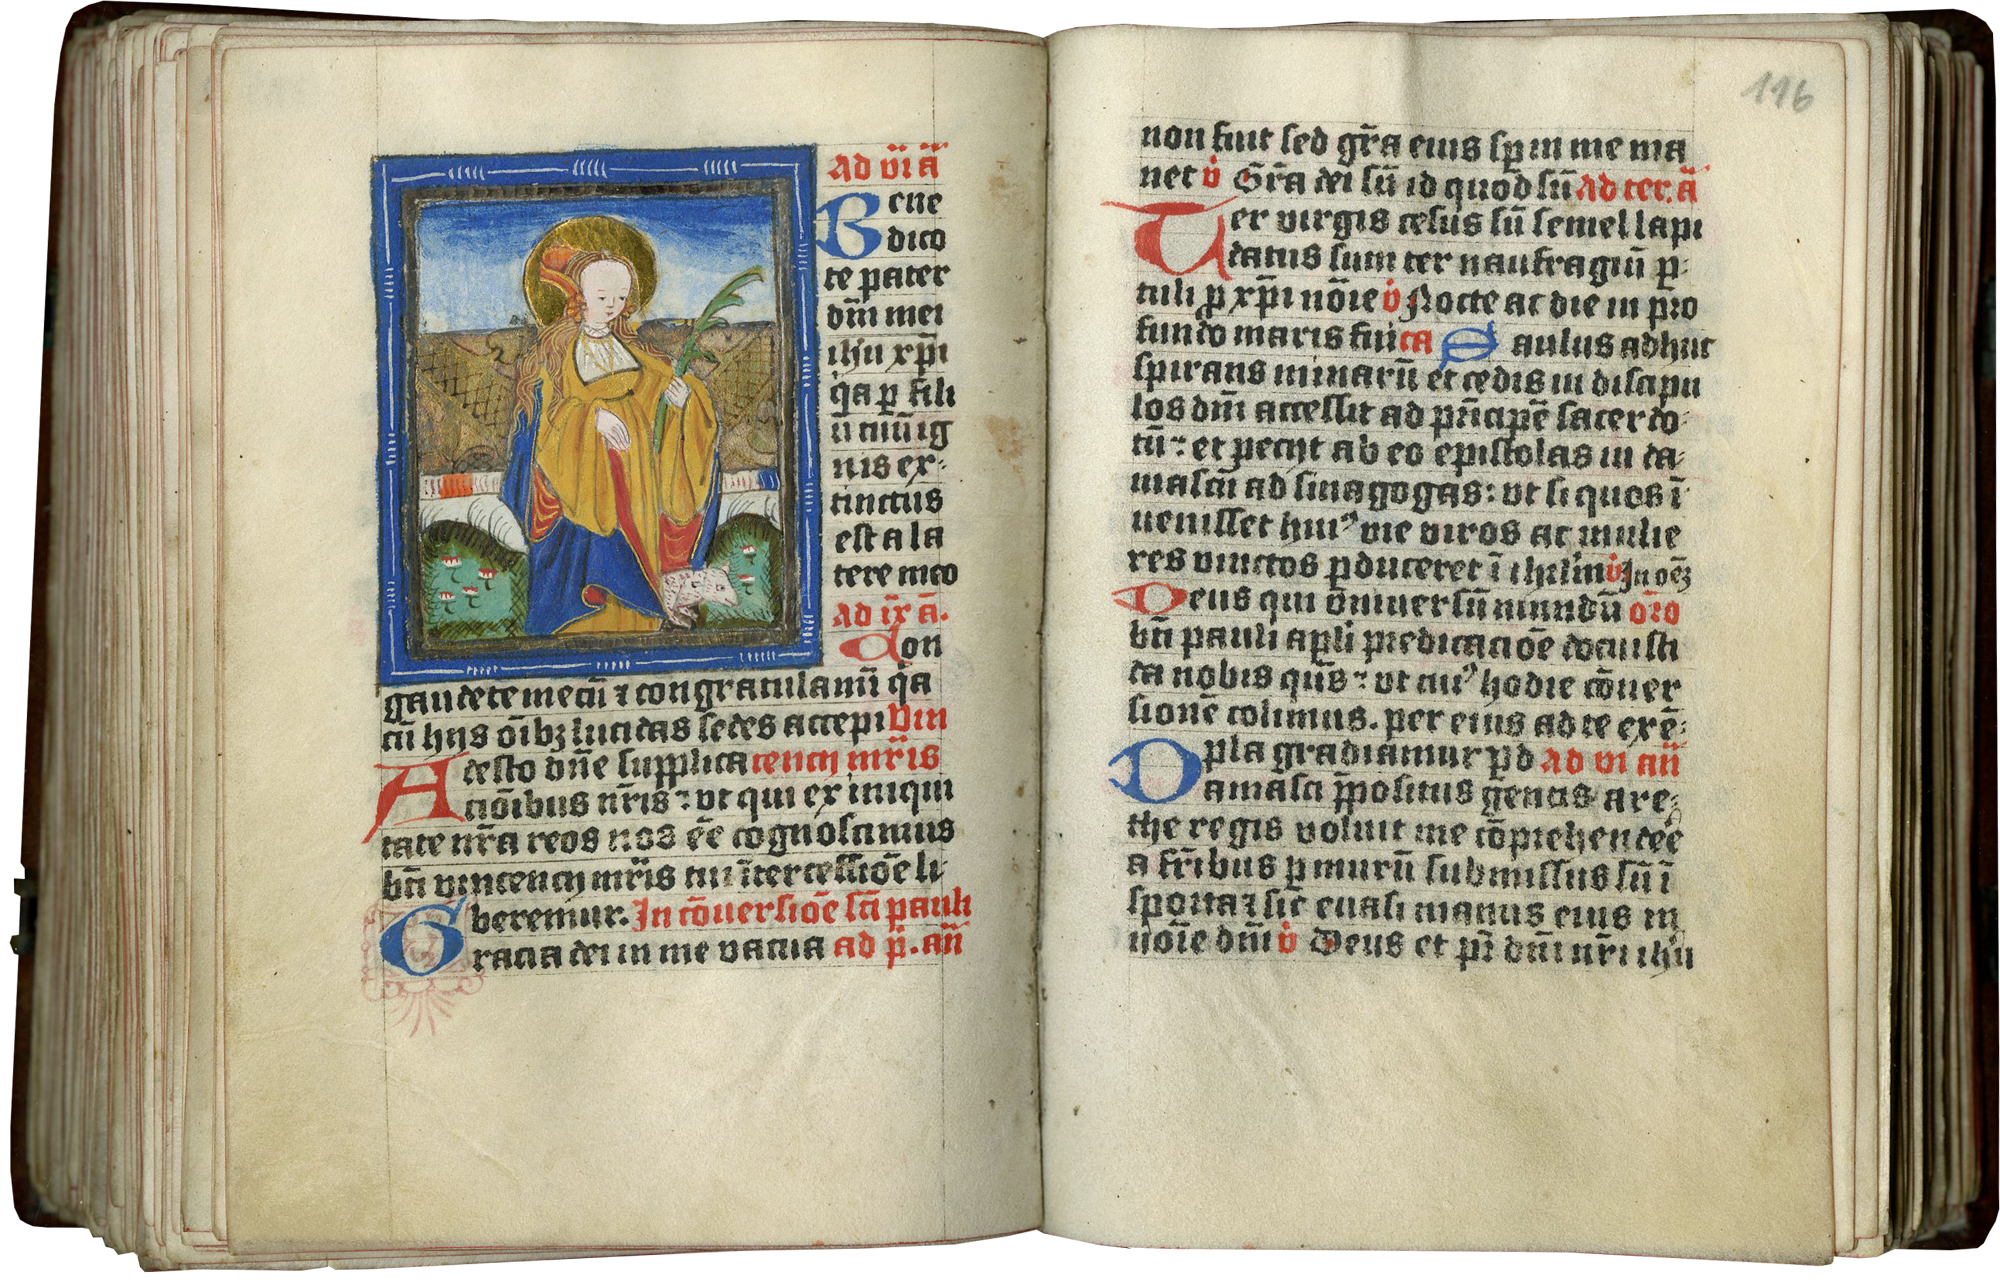 ad vi ā
Bene
dico
te pater
dm̄ mei
ihu xp̄i
q̇a ꝑ fili
ū tuū ig
nis ex-
tinctus
est a la
tere meo
ad ix ā.
Con
gaudete mecū ⁊ congratulamī q̇a
cū hijs ōībꝫ lucidas sedes accepi Vin
Adesto dn̄e supplica cencij mr̄is
cōibus nr̄is : vt qui ex iniqui
tate nr̄a reos nos eē cognoscimus
bt̄i vincencij mr̄is tui īter cessiōe li
beremur. In cōuersiōe sc̄i pauli
Gracia dei in me vacua ad p̄. an̄
116
non fuit sed gr̄a eius sꝑ in me ma
net v̇ Gr̄a dei sū id quod sū ad ter. ā
Ter virgis cesus sū semel lapi
datus sum ter naufragiū ꝑ-
tuli ꝓ xp̄i nōie v̇ Nocte ac die in pro
fundo maris fui ca Saulus adhuc
spirans minarū et cedis in discipu
los dm̄ accessit ad pn̄cipē sacerdo-
tū : et pecijt ab eo epistolas in da-
mascū ad sinagogas : vt si quos ī
uenisset huiꝰ vie viros ac mulie
res vinctos ꝑduceret ī ihrl̄m v̇ In oēꝫ
Deus qui vniuersū mundū or̄o
bt̄i pauli apl̄i predicaciōe docuisti
da nobis qs̄ : vt cuiꝰ hodie cōuer
sionē colimus. per eius ad te exē-
pla gradiamur ꝑ d ad vi an̄
Damasci p̄positus gentis are-
the regis voluit me cōprehendee
a fr̄ibus ꝑ murū submissus sū ī
sporta ⁊ sic euasi manus eius in
nōie dm̄i v̇ Deus et pr̄ dm̄i nr̄i ihū